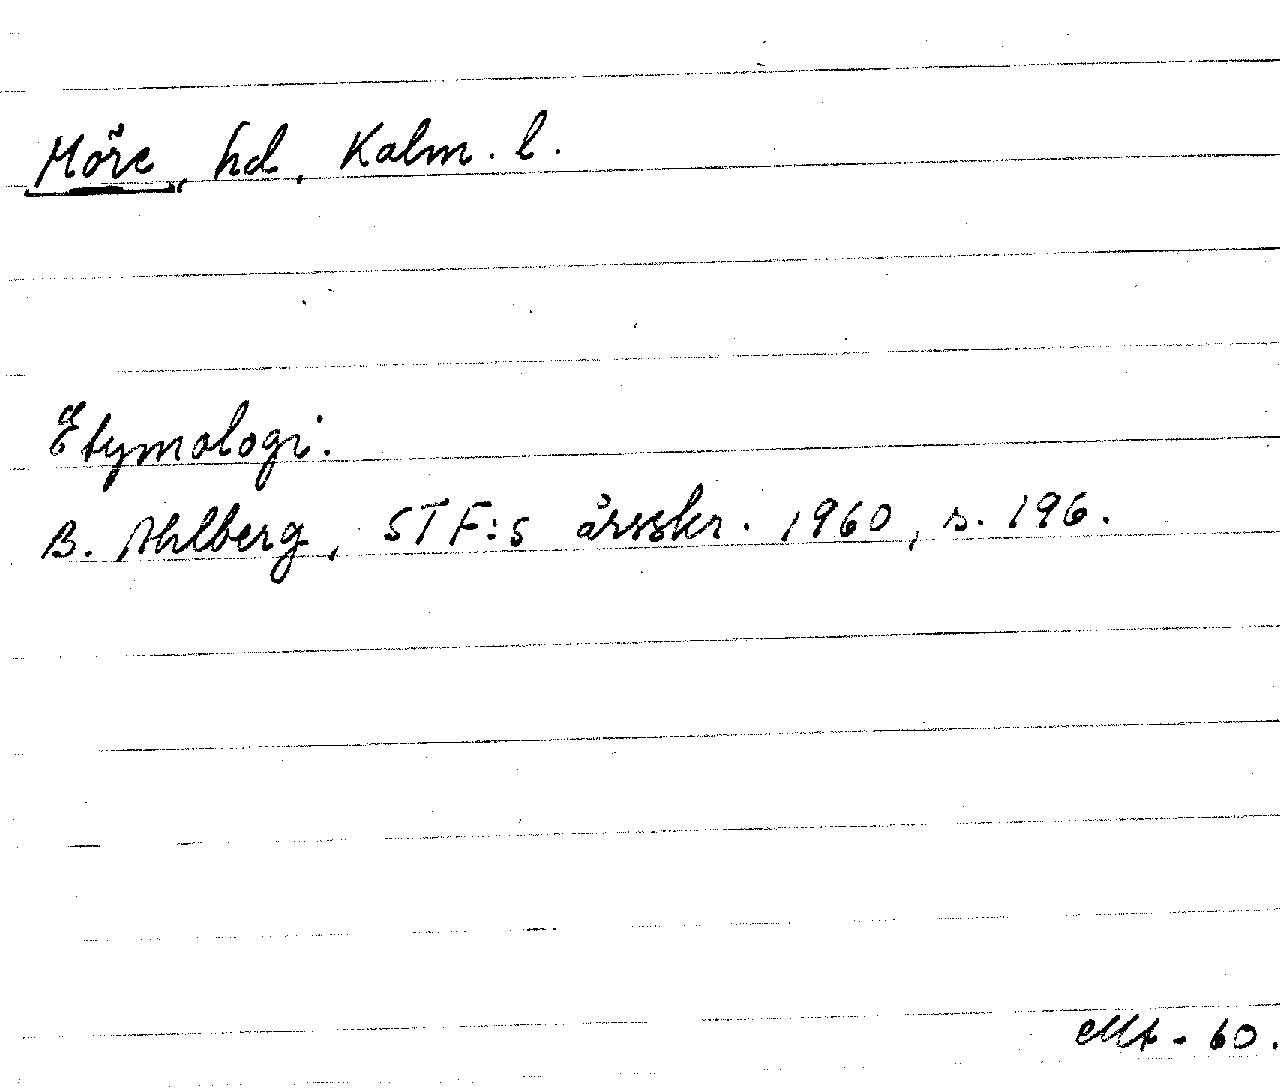 Möre, hd, Kalm. l.
Etymologi.
B. Ahlberg, STF:s årsskr. 1960, s. 196.
Mt - 60.